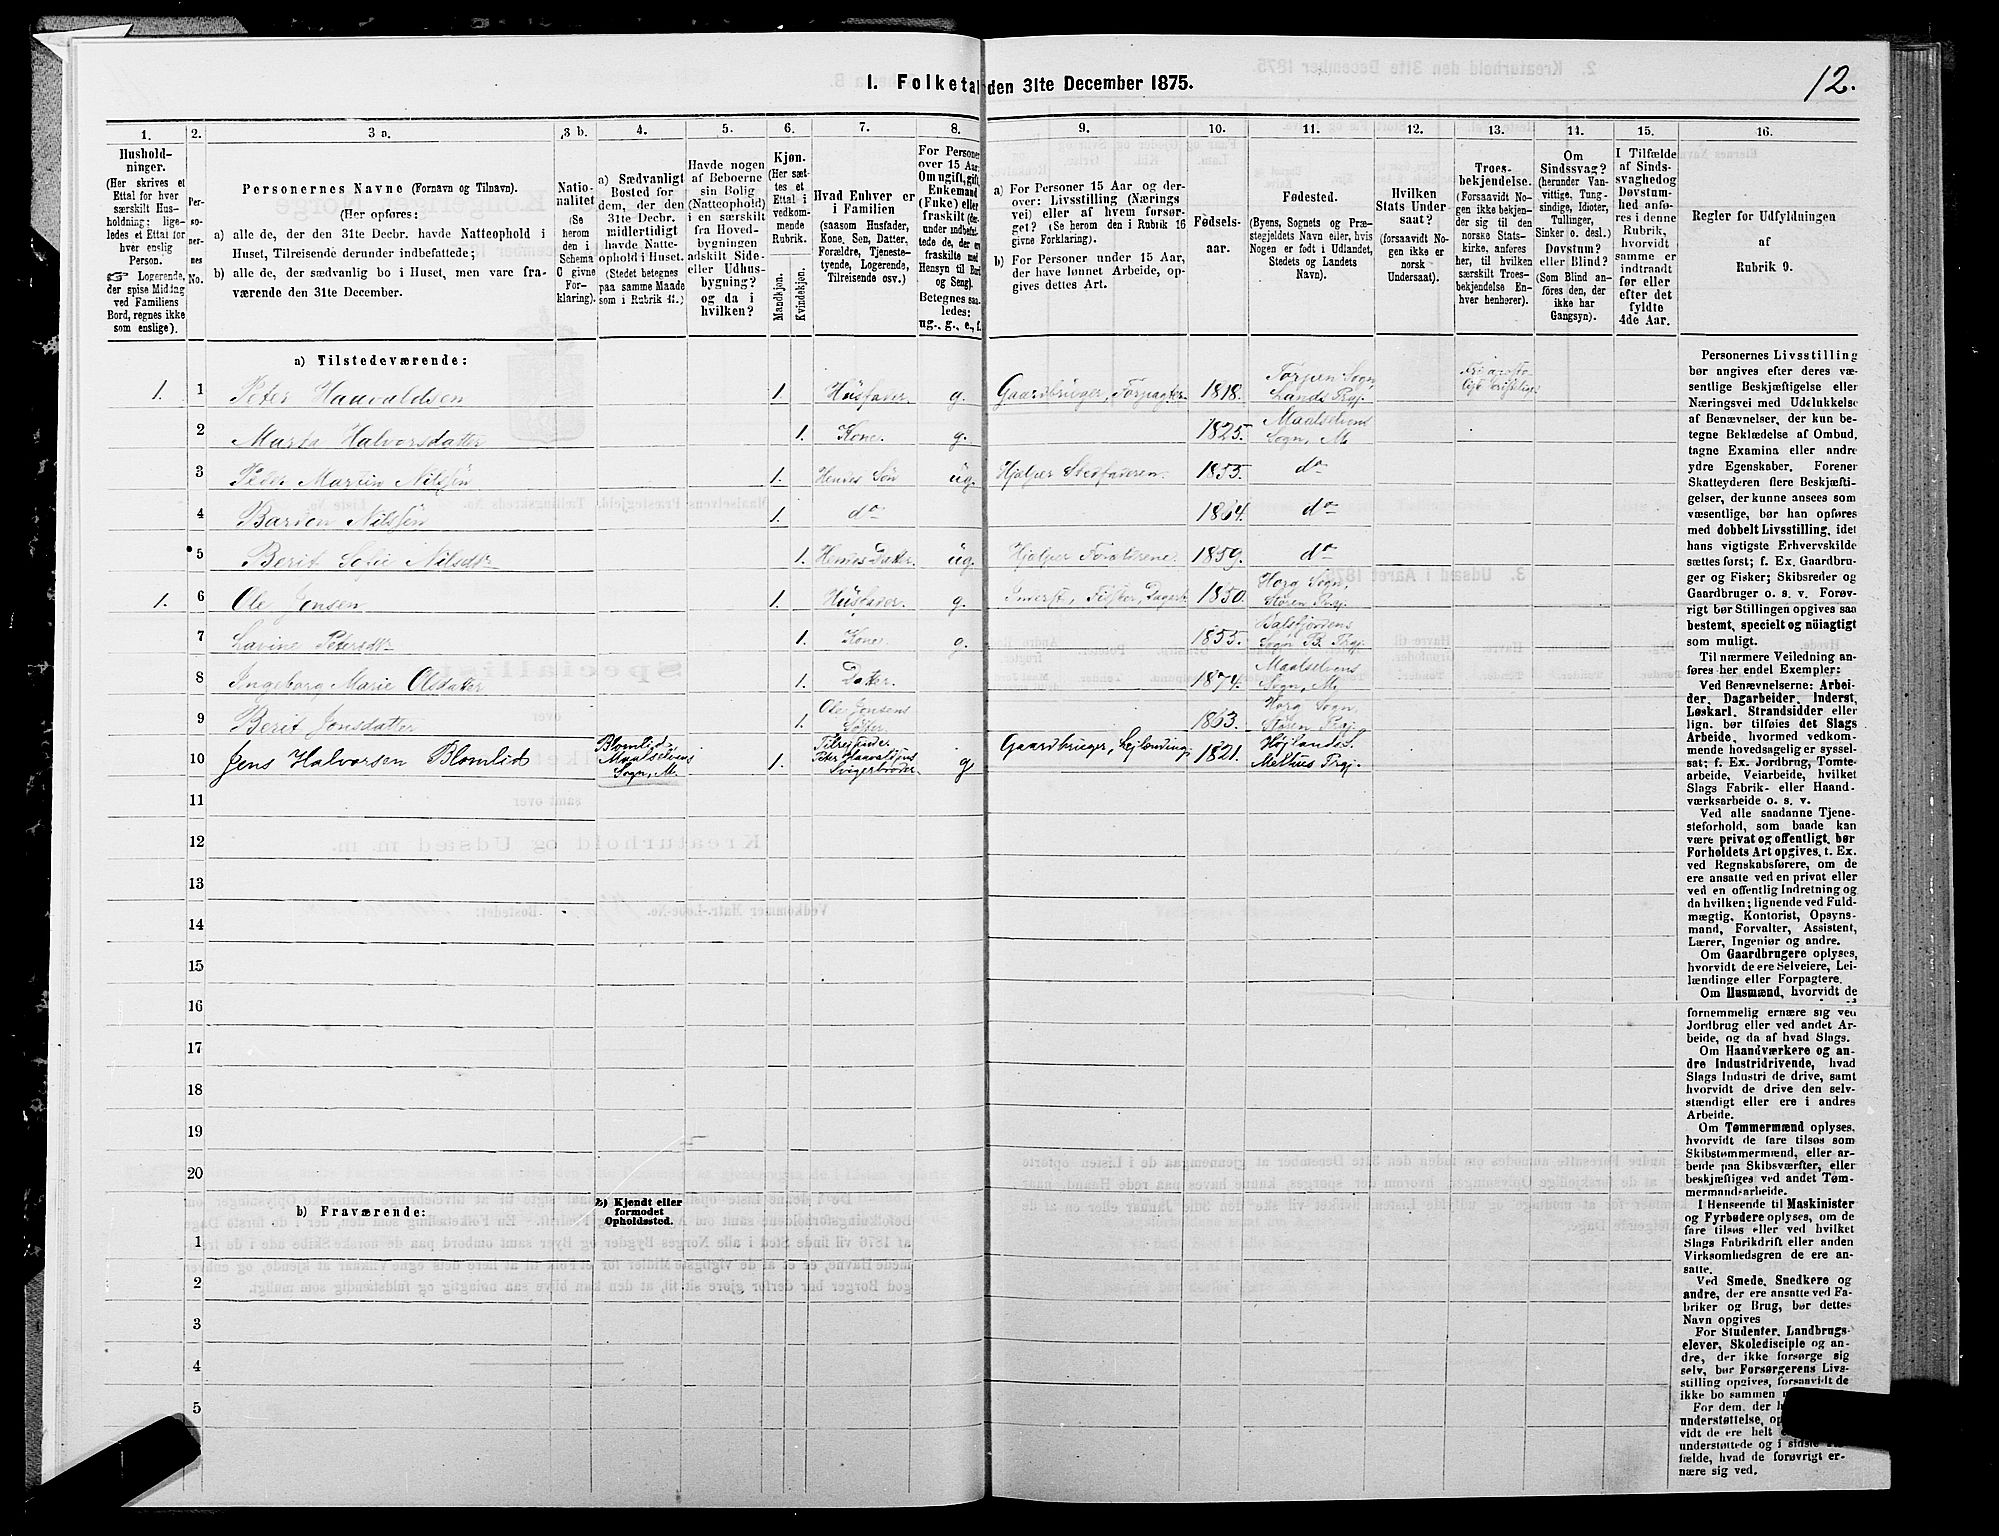 1. Folketal den 31te December 1875.
12.
1.
Hushold-
ninger.
(Her skrives et
Ettal for hver
særskilt Hus-
holdning; lige-
ledes et Ettal for
hver enslig
Person.
☞ Logerende,
der spise Middag
ved Familiens
Bord, regnes ikke
som enslige).
2.
Per-
so-
ner-
nes
No.
3 a.
Personernes Navne (Fornavn og Tilnavn).
(Her opføres:
a) alle de, der den 31te Decbr. havde Natteophold i
Huset, Tilreisende derunder indbefattede;
b) alle de, der sædvanlig bo i Huset, men vare fra-
værende den 31te December.
3 b.
Natio-
nalitet
(Se
herom
den i
Schema
C givne
For-
klaring).
4.
a) Sædvanligt
Bosted for
dem, der den
31te Decbr.
midlertidigt
havde Natte-
ophold i Huset.
(Stedet betegnes
paa samme Maade
som i Rubrik 11.)
5.
Havde nogen
af Beboerne
sin Bolig
(Natteophold)
i en særskilt
fra Hoved-
bygningen
adskilt Side-
eller Udhus-
bygning?
og da i
hvilken?
6.
Kjøn.
(Her sæt-
tes et
Ettal i
vedkom-
mende
Rubrik.
Mandkjøn.
Kvindekjøn.
7.
Hvad Enhver er
i Familien
(saasom Husfader,
Kone, Søn, Datter,
Forældre, Tjeneste-
tyende, Logerende,
Tilreisende osv.)
8.
For Personer
over 15 Aar:
Om ugift, gift,
Enkemand
(Enke) eller
fraskilt (der-
under indbefat-
tede de, der ere
fraskilte med
Hensyn til Bord
og Seng).
Betegnes saa-
ledes:
ug., g., e., f.
9.
a) For Personer 15 Aar og der-
over: Livsstilling (Nærings-
vei) eller af hvem forsør-
get? (Se herom den i Rubrik 16
givne Forklaring).
b) For Personer under 15 Aar,
der have lønnet Arbeide, op-
gives dettes Art.
10.
Fødsels-
aar.
11.
Fødested.
(Byens, Sognets og Præ-
stegjeldets Navn eller, hvis
Nogen er født i Udlandet,
Stedets og Landets
Navn).
12.
Hvilken
Stats Under-
saat?
(forsaavidt No-
gen ikke er
norsk
Undersaat).
13.
Troes-
bekjendelse.
(Forsaavidt No-
gen ikke bekjen-
der sig til den
norske Stats-
kirke, anføres
her, til hvilken
særskilt Troes-
bekjendelse En-
hver henhører).
14.
Om
Sindssvag?
(herunder Van-
vittige, Tung-
sindige, Idioter,
Tullinger,
Sinker o. desl.)
Døvstum?
eller Blind?
(Som Blind an-
føres den, der
ikke har
Gangsyn).
15.
I Tilfælde
af Sinds-
svaghed og
Døvstum-
hed anfø-
res i denne
Rubrik,
hvorvidt
samme er
indtraadt
før eller
efter det
fyldte
4de Aar.
16.
Regler for Udfyldningen
af
Rubrik 9.
a) Tilstedeværende:
1. 1 Peter Haavaldsen 1. Husfader. g. Gaardbruger, Forpagter 1818. Torpen Sogn, Lands Prgj. Fri aposto-
2 Marta Halvorsdatter 1. Kone. g. 1825. Maalselvens Sogn, M
3 Peder Martin Nilsen 1. Hendes Søn ug. Hjælper Stedfaderen. 1855. do
4 Nilsen 1. do 1864. do
5 Berit Sofie Nilsdtr 1. Hendes Datter. ug. Hjælper Forældrene. 1859. do
1. 6 Ole Jensen 1. Husfader. g. Inderst, Fisker, Dagarb. 1850. Horg Sogn, Støren Prgj.
7 Lavine Petersdtr 1. Kone. g. 1855. Balsfjordens Sogn B. Prgj.
8 Ingeborg Marie Olsdatter 1. Datter. 1874. Maalselvens Sogn, M.
9 Berit Jonsdatter 1. Ole Jensens Søster. 1863. Horg Sogn, Støren Prgj.
10 Jens Halvorsen Blomlid Blomlid, Maalselvens Sogn, M. 1. Tilrejsende, Peter Haavaldsens Svigerbroder g. Gaardbruger, Lejlænding 1821. Højlandet S. Melhus Prgj.
11
12
13
14
15
16
17
18
19
20
b) Fraværende:
b) Kjendt eller
formodet
Opholdssted.
1
2
3
4
5
Personernes Livsstilling
bør angives efter deres væ-
sentlige Beskjæftigelse eller
Næringsvei med Udelukkelse
af Benævnelser, der kun be-
tegne Beklædelse af Ombud,
tagne Examina eller andre
ydre Egenskaber. Forener
Skatteyderen flere Beskjæfti-
gelser, der kunne ansees som
væsentlige, bør han opføres
med dobbelt Livsstilling, idet
hans vigtigste Erhvervskilde
sættes først; f. Ex. Gaardbru-
ger og Fisker; Skibsreder og
Gaardbruger o. s. v. Forøv-
rigt bør Stillingen opgives saa
bestemt, specielt og nöiagtigt
som muligt.
Til nærmere Veiledning an-
føres her endel Exempler:
Ved Benævnelserne: Arbei-
der, Dagarbeider, Inderst,
Løskarl, Strandsidder eller
lign. bør tilføies det Slags
Arbeide, hvormed vedkom-
mende hovedsagelig er syssel-
sat; f. Ex. Jordbrug, Tomte-
arbeide, Veiarbeide, hvilket
Slags Fabrik- eller Haand-
værksarbeide o. s. v.
Ved alle saadanne Tjene-
steforhold, som baade kan
være privat og offentligt, bør
Forholdets Art opgives, t. Ex.
ved Regnskabsførere, om de
ere ansatte ved en privat eller
ved en offentlig Indretning og
da hvilken; lignende ved Fuld-
mægtig, Kontorist, Opsyns-
mand, Forvalter, Assistent,
Lærer, Ingeniør og andre.
Om Gaardbrugere oplyses,
hvorvidt de ere Selveiere, Lei-
lændinge eller Forpagtere.
Om Husmænd, hvorvidt de
fornemmelig ernære sig ved
Jordbrug eller ved andet Ar-
beide, og da af hvad Slags.
Om Haandværkere og an-
dre Industridrivende, hvad
Slags Industri de drive, samt
hvorvidt de drive den selv-
stændigt eller ere i andres
Arbeide.
Om Tømmermænd oplyses,
hvorvidt de fare tilsøs som
Skibstømmermænd, eller ar-
beide paa Skibsværfter, eller
beskjæftiges ved andet Tøm-
mermandsarbeide.
I Henseende til Maskinister
og Fyrbødere oplyses, om de
fare tilsøs eller ved hvilket
Slags Fabrikdrift eller anden
Virksomhedsgren de ere an-
satte.
Ved Smede, Snedkere og
andre, der ere ansatte ved Fa-
briker og Brug, bør dettes
Navn opgives
For Studenter, Landbrugs-
elever, Skoledisciple og an-
dre, der ikke forsørge sig
selv, bør Forsørgerens Livs-
stilling opgives, forsaavidt de
ikke bo sammen
For dem, der
understøttelse,
vidt de ere helt
understøttede og i sidste
fælde, hvad de forøvrigt er-
nære sig ved.